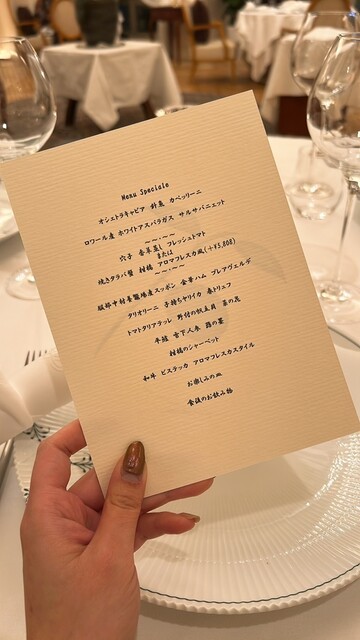 Menu Speciale
オシェトラキャビア 針魚 カペッリーニ
ロワール産 ホワイトアスパラガス サルサバニェット
〜・〜・〜
穴子 香草蒸し フレッシュトマト
または
焼きタラバ蟹 柑橘 アロマフレスカ風(+¥3,808)
〜・〜・〜
服部中村養鼈場産スッポン 金華ハム プレアヴェルデ
タリオリーニ 子持ちヤリイカ 春トリュフ
トマトタリアテッレ 野付の帆立貝 菜の花
平鱸 雪下人参 蕗の薹
柑橘のシャーベット
和牛 ビステッカ アロマフレスカスタイル
お楽しみの皿
食後のお飲み物